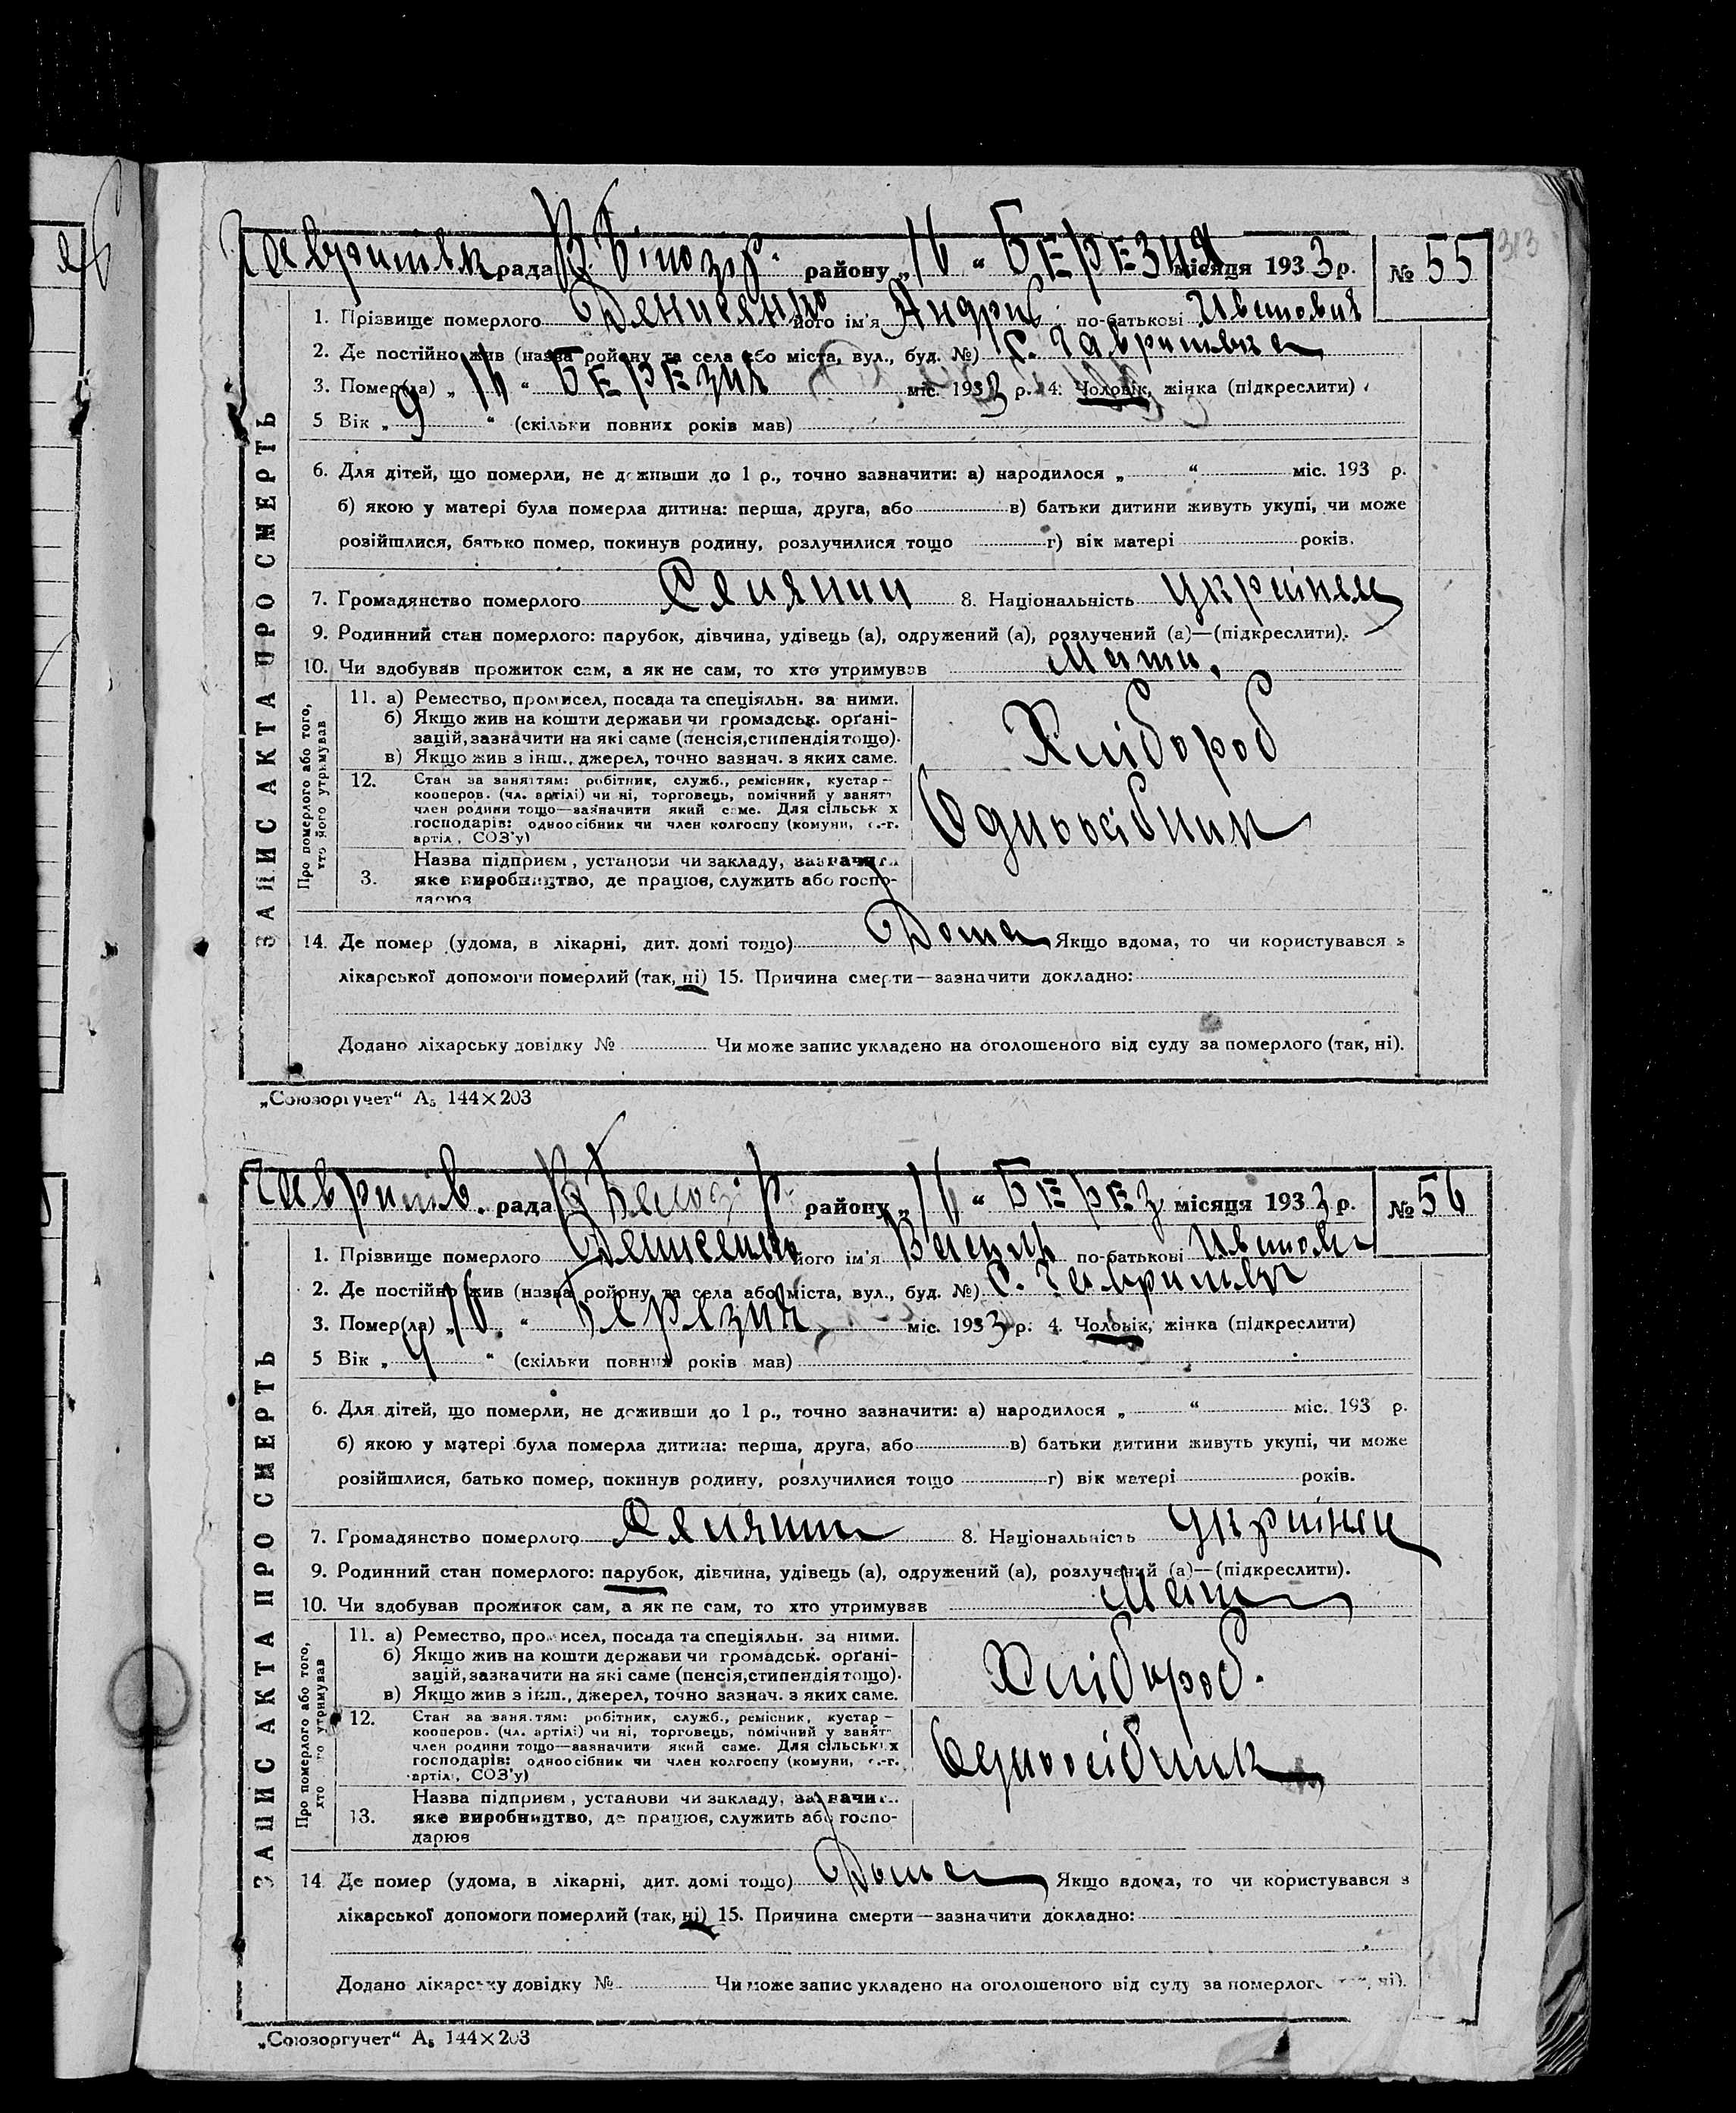 Гавришівк рада В. Білозір. району „16 “ БЕРЕЗНЯ місяця 1933 р. № 55
313
ЗАПИС АКТА ПРО СМЕРТЬ
1. Прізвище померлого Денисенко його ім'я Андрій по-батькові Иванович
2. Де постійно жив (назва ройону та села або міста, вул., буд. №) С. Гавришівка
3. Помер(ла) „ 16 “ БЕРЕЗНЯ міс. 1933 р. 4. Чоловік, жінка (підкреслити)
5 Вік „ 9 “ (скільки повних років мав)
6. Для дітей, що померли, не доживши до 1 р., точно зазначити: а) народилося „ “ міс. 193 р.
б) якою у матері була померла дитина: перша, друга, або в) батьки дитини живуть укупі, чи може
розійшлися, батько помер, покинув родину, розлучилися тощо г) вік матері років.
7. Громадянство померлого Селянин 8. Національність Українец
9. Родинний стан померлого: парубок, дівчина, удівець (а), одружений (а), розлучений (а)—(підкреслити).
10. Чи здобував прожиток сам, а як не сам, то хто утримував Мати.
Про померлого або того, хто його утримував
11. а) Ремество, промисел, посада та спеціяльн. за ними.
б) Якщо жив на кошти держави чи громадськ. орґані-
зацій, зазначити на які саме (пенсія, стипендія тощо).
в) Якщо жив з інш., джерел, точно зазнач. з яких саме.
Хлібороб
12. Стан за заняттям: робітник, служб., ремісник, кустар –
кооперов. (чл. артілі) чи ні, торговець, помічний у занятт
член родини тощо—зазначити який саме. Для сільськ х
господарів: одноосібник чи член колгоспу (комуни, с.-г.
артіл, СОЗ'у)
Одноосібник
Назва підприєм, установи чи закладу, зазначити
3. яке виробництво, де працює, служить або госпо-
дарює
14. Де помер (удома, в лікарні, дит. домі тощо) Дома Якщо вдома, то чи користувався з
лікарської допомоги померлий (так, ні) 15. Причина смерти—зазначити докладно:
Додано лікарську довідку № Чи може запис укладено на оголошеного від суду за померлого (так, ні).
„Союзоргучет“ А₅ 144×203
Гавришів. рада В. Білозір. району „16 “ БЕРЕЗ місяця 1933 р. № 56
ЗАПИС АКТА ПРО СМЕРТЬ
1. Прізвище померлого Денисенко його ім'я Василь по-батькові Иванови
2. Де постійно жив (назва ройону та села або міста, вул., буд. №) С. Гавришівк
3. Помер(ла) „ 16 “ Березня міс. 1933 р. 4. Чоловік, жінка (підкреслити)
5 Вік „ 4 “ (скільки повних років мав)
6. Для дітей, що померли, не доживши до 1 р., точно зазначити: а) народилося „ “ міс. 193 р.
б) якою у матері була померла дитина: перша, друга, або в) батьки дитини живуть укупі, чи може
розійшлися, батько помер, покинув родину, розлучилися тощо г) вік матері років.
7. Громадянство померлого Селянин 8. Національність Українец
9. Родинний стан померлого: парубок, дівчина, удівець (а), одружений (а), розлучений (а)—(підкреслити).
10. Чи здобував прожиток сам, а як не сам, то хто утримував Мати
Про померлого або того, хто його утримував
11. а) Ремество, промисел, посада та спеціяльн. за ними.
б) Якщо жив на кошти держави чи громадськ. орґані-
зацій, зазначити на які саме (пенсія, стипендія тощо).
в) Якщо жив з інш., джерел, точно зазнач. з яких саме.
Хлібороб.
12. Стан за заняттям: робітник, служб., ремісник, кустар –
кооперов. (чл. артілі) чи ні, торговець, помічний у занятт
член родини тощо—зазначити який саме. Для сільських
господарів: одноосібник чи член колгоспу (комуни, с.-г.
артіл, СОЗ'у)
Одноосібник
Назва підприєм, установи чи закладу, зазначит
13. яке виробництво, де працює, служить або госпо-
дарює
14. Де помер (удома, в лікарні, дит. домі тощо) Дома Якщо вдома, то чи користувався з
лікарської допомоги померлий (так, ні) 15. Причина смерти—зазначити докладно:
Додано лікарську довідку № Чи може запис укладено на оголошеного від суду за померлого (так, ні).
„Союзоргучет“ А₅ 144×203